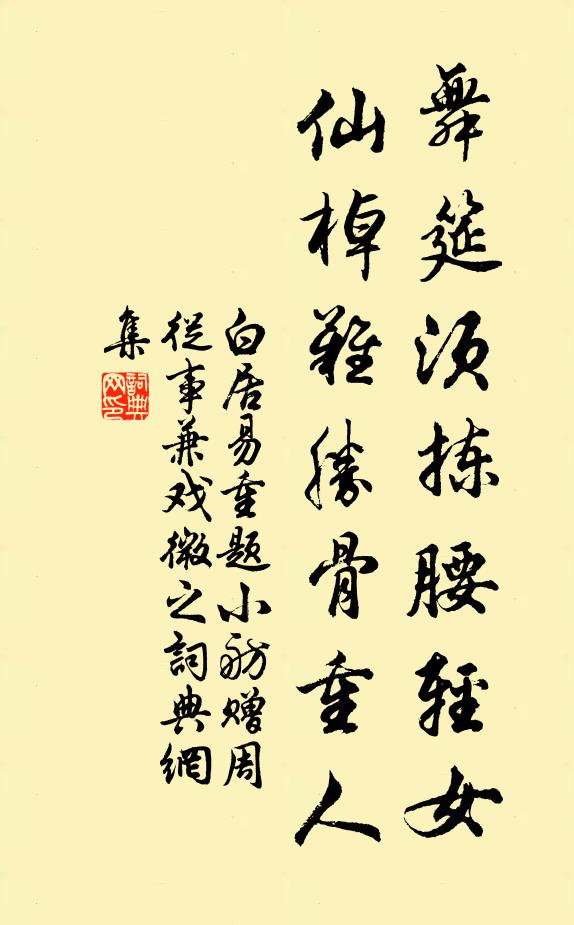 舞筵須揀腰輕女
仙棹難勝骨重人
白居易重題小舫贈周
從事兼戏微之詞典網
集
詞典网印